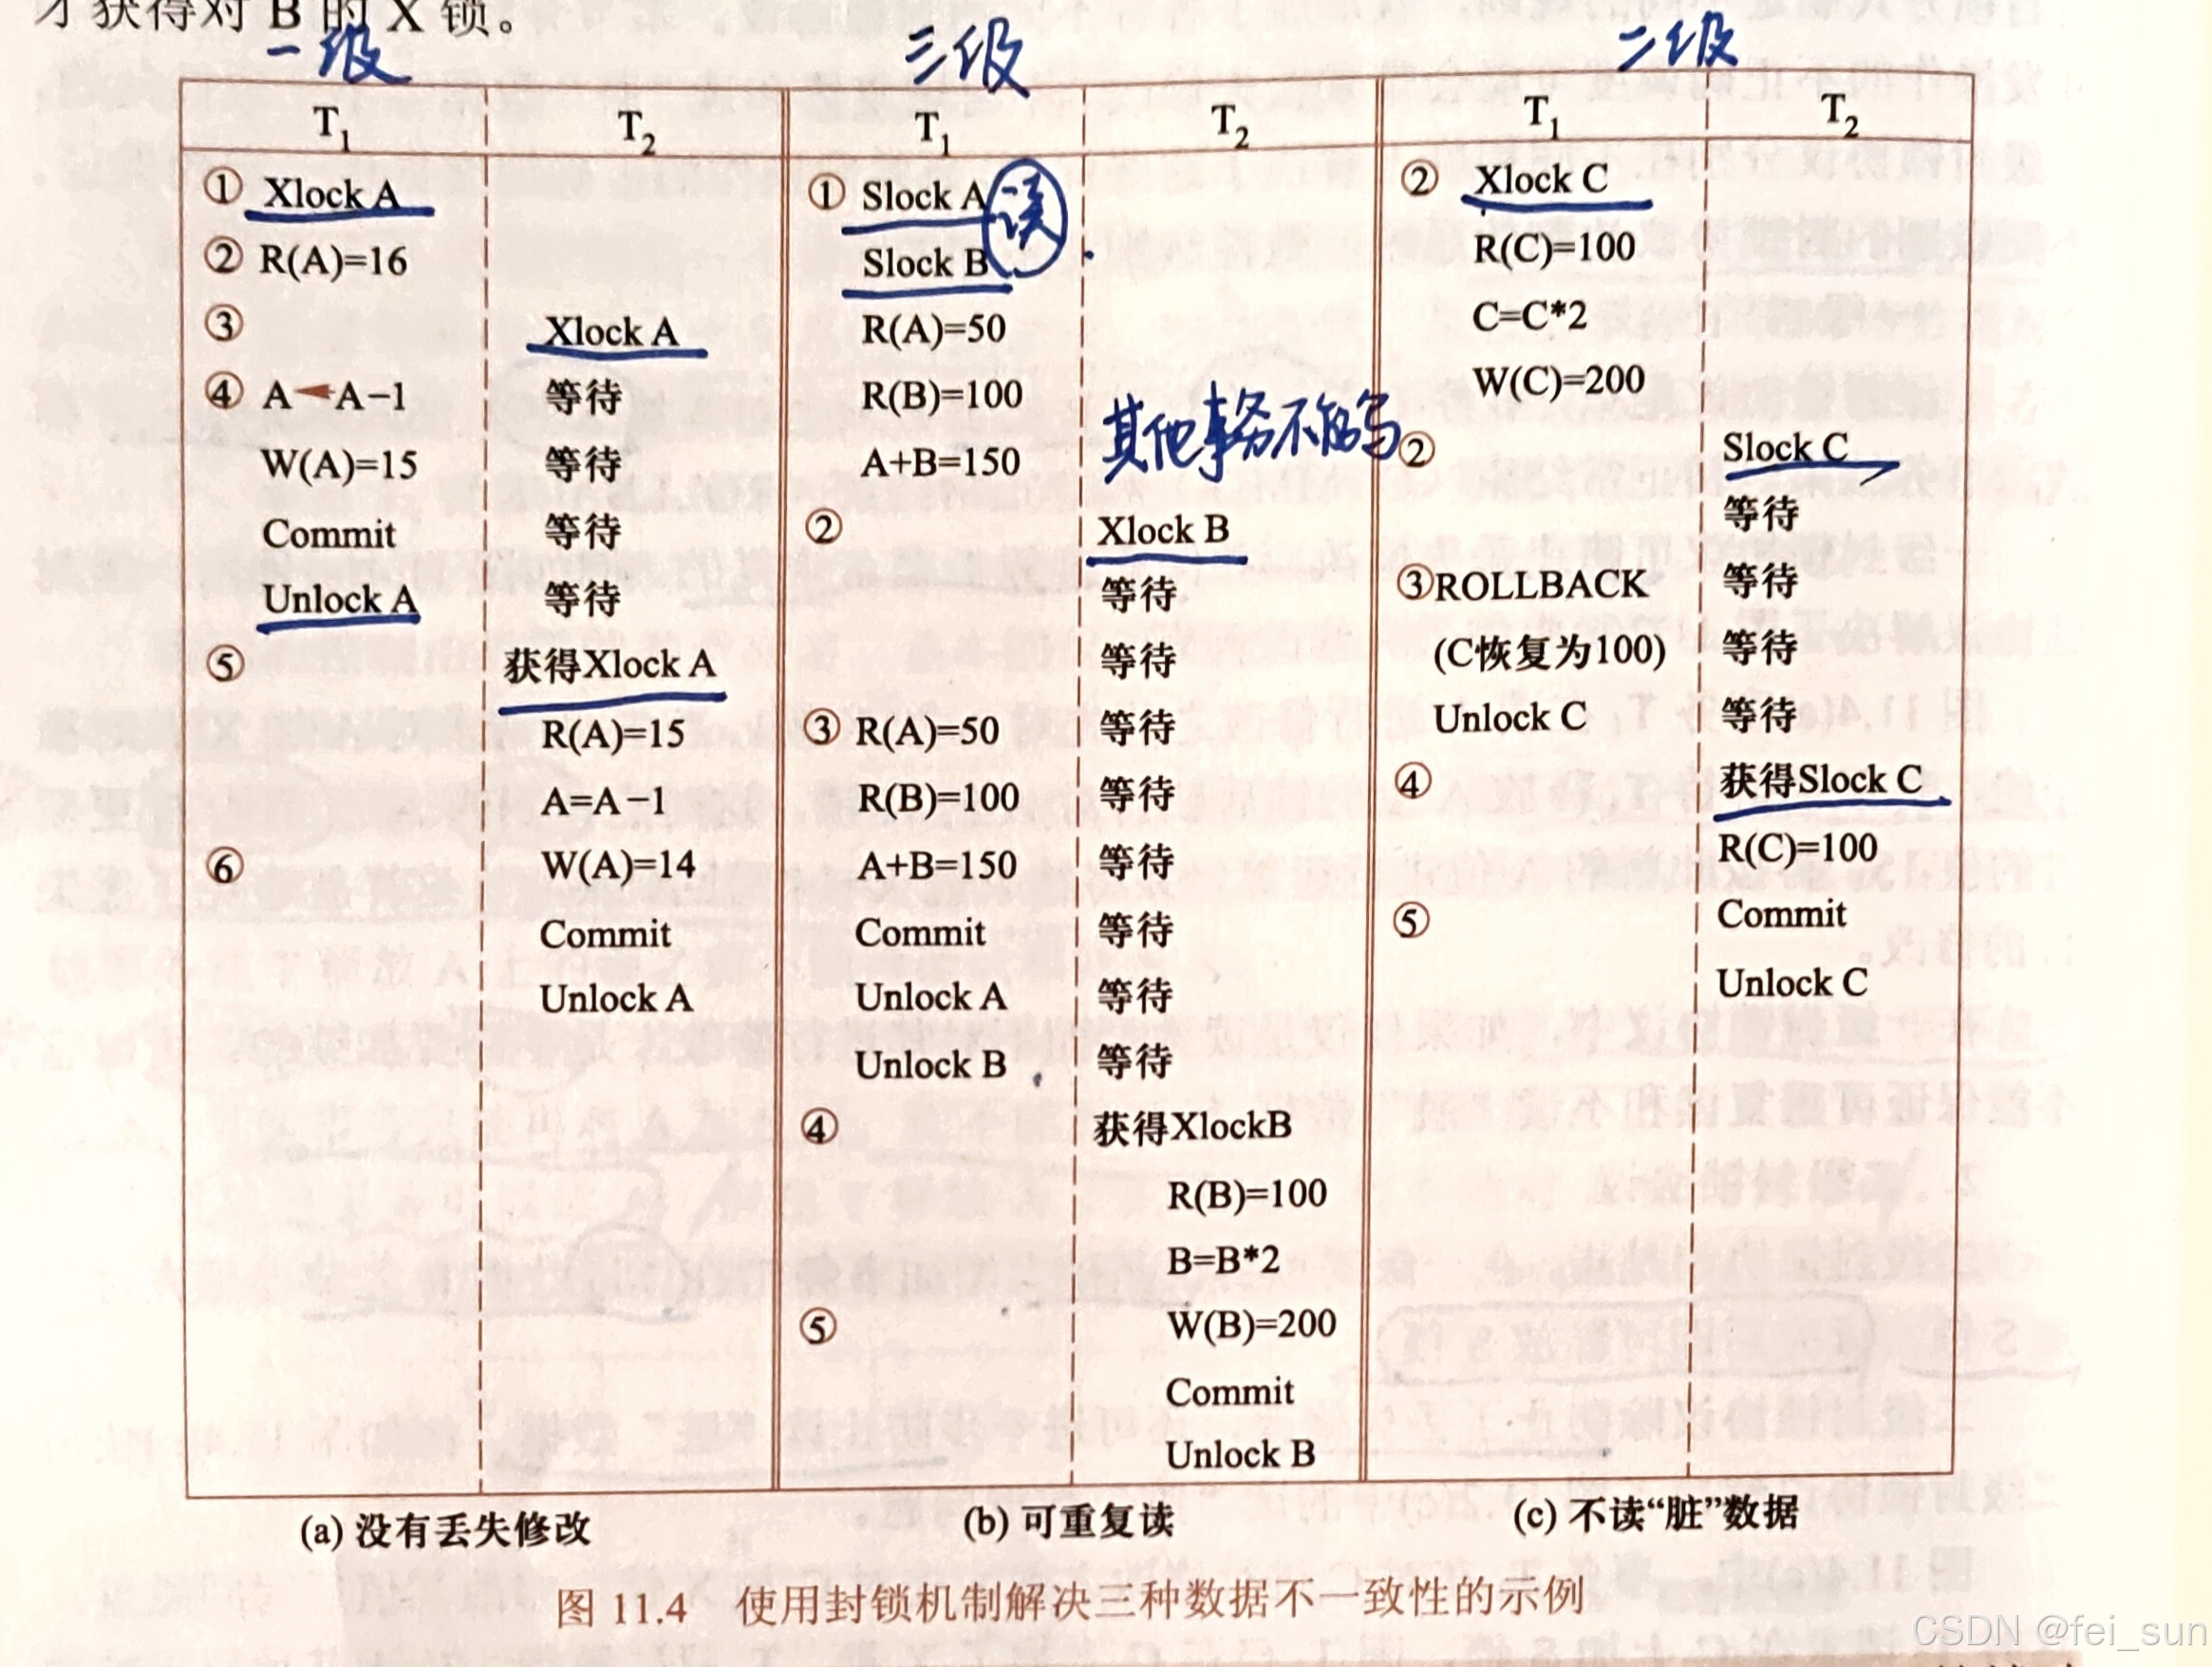 才获得对 B 的 X 锁。
一级 三级 二级
T1 T2 T1 T2 T1 T2
① Xlock A ① Slock A 读 ② Xlock C
② R(A)=16 Slock B R(C)=100
③ Xlock A R(A)=50 C=C*2
④ A←A−1 等待 R(B)=100 W(C)=200
其他事务不能写
W(A)=15 等待 A+B=150 ② Slock C
Commit 等待 ② Xlock B 等待
Unlock A 等待 等待 ③ROLLBACK 等待
⑤ 获得Xlock A 等待 (C恢复为100) 等待
R(A)=15 ③ R(A)=50 等待 Unlock C 等待
A=A−1 R(B)=100 等待 ④ 获得Slock C
⑥ W(A)=14 A+B=150 等待 R(C)=100
Commit Commit 等待 ⑤ Commit
Unlock A Unlock A 等待 Unlock C
Unlock B 等待
④ 获得XlockB
R(B)=100
B=B*2
⑤ W(B)=200
Commit
Unlock B
(a) 没有丢失修改 (b) 可重复读 (c) 不读“脏”数据
图 11.4 使用封锁机制解决三种数据不一致性的示例
CSDN @fei_sun